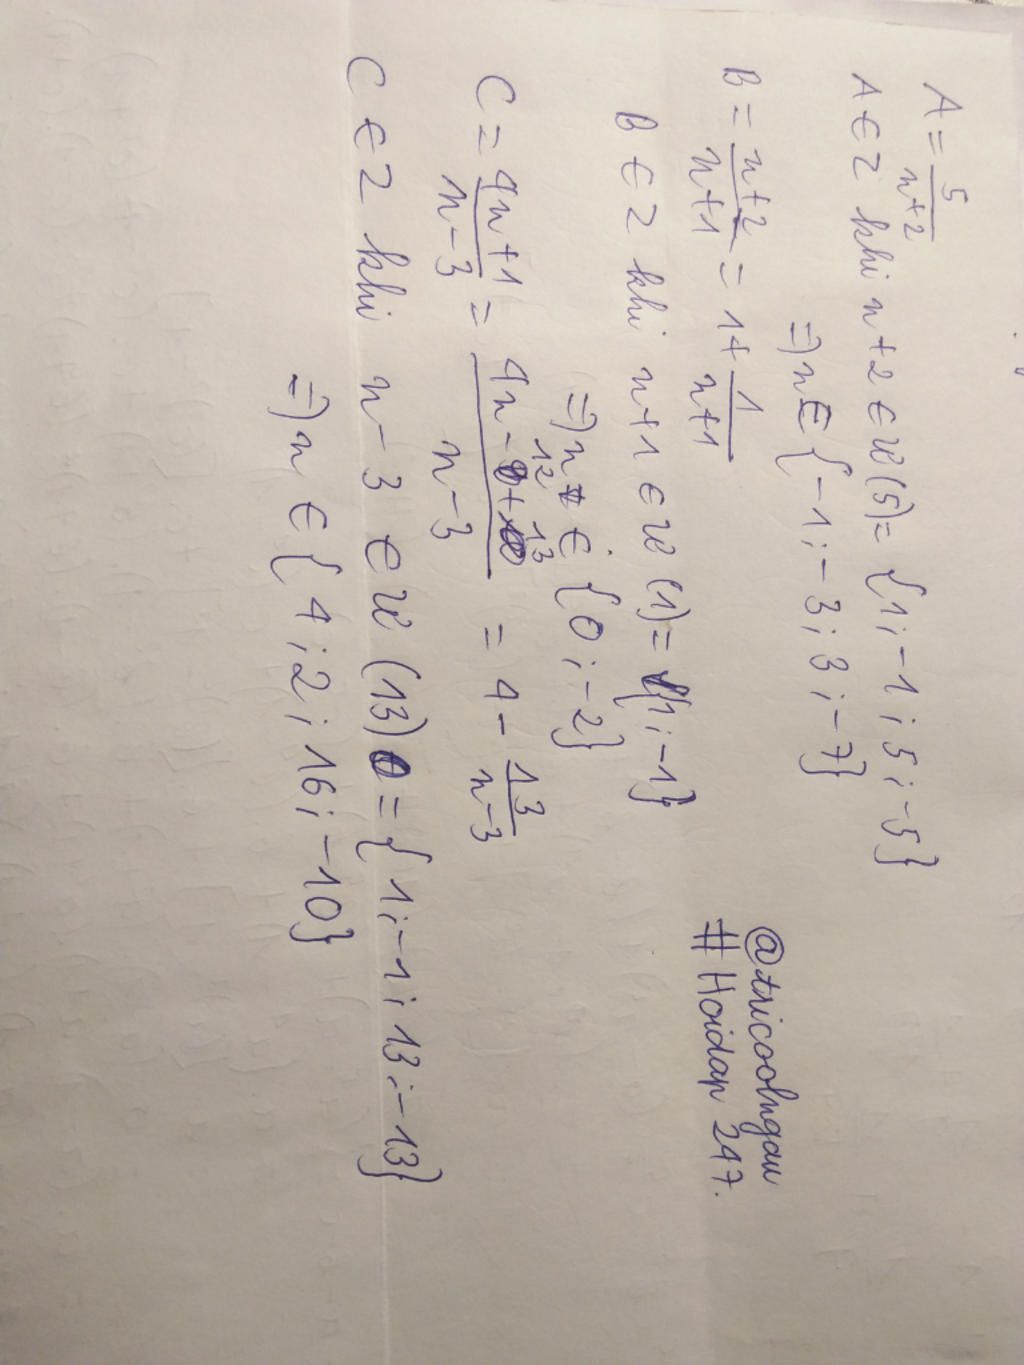 A = 5/(n+2)
A ∈ Z khi n+2 ∈ Ư(5) = {1; -1; 5; -5}
=> n ∈ {-1; -3; 3; -7}
B = (n+2)/(n+1) = 1 + 1/(n+1)
B ∈ Z khi n+1 ∈ Ư(1) = {1; -1}
=> n ∈ {0; -2}
C = (4n+1)/(n-3) = (4n-12+13)/(n-3) = 4 - 13/(n-3)
C ∈ Z khi n-3 ∈ Ư(13) = {1; -1; 13; -13}
=> n ∈ {4; 2; 16; -10}
@tricoolngau
#Hoidap 247.